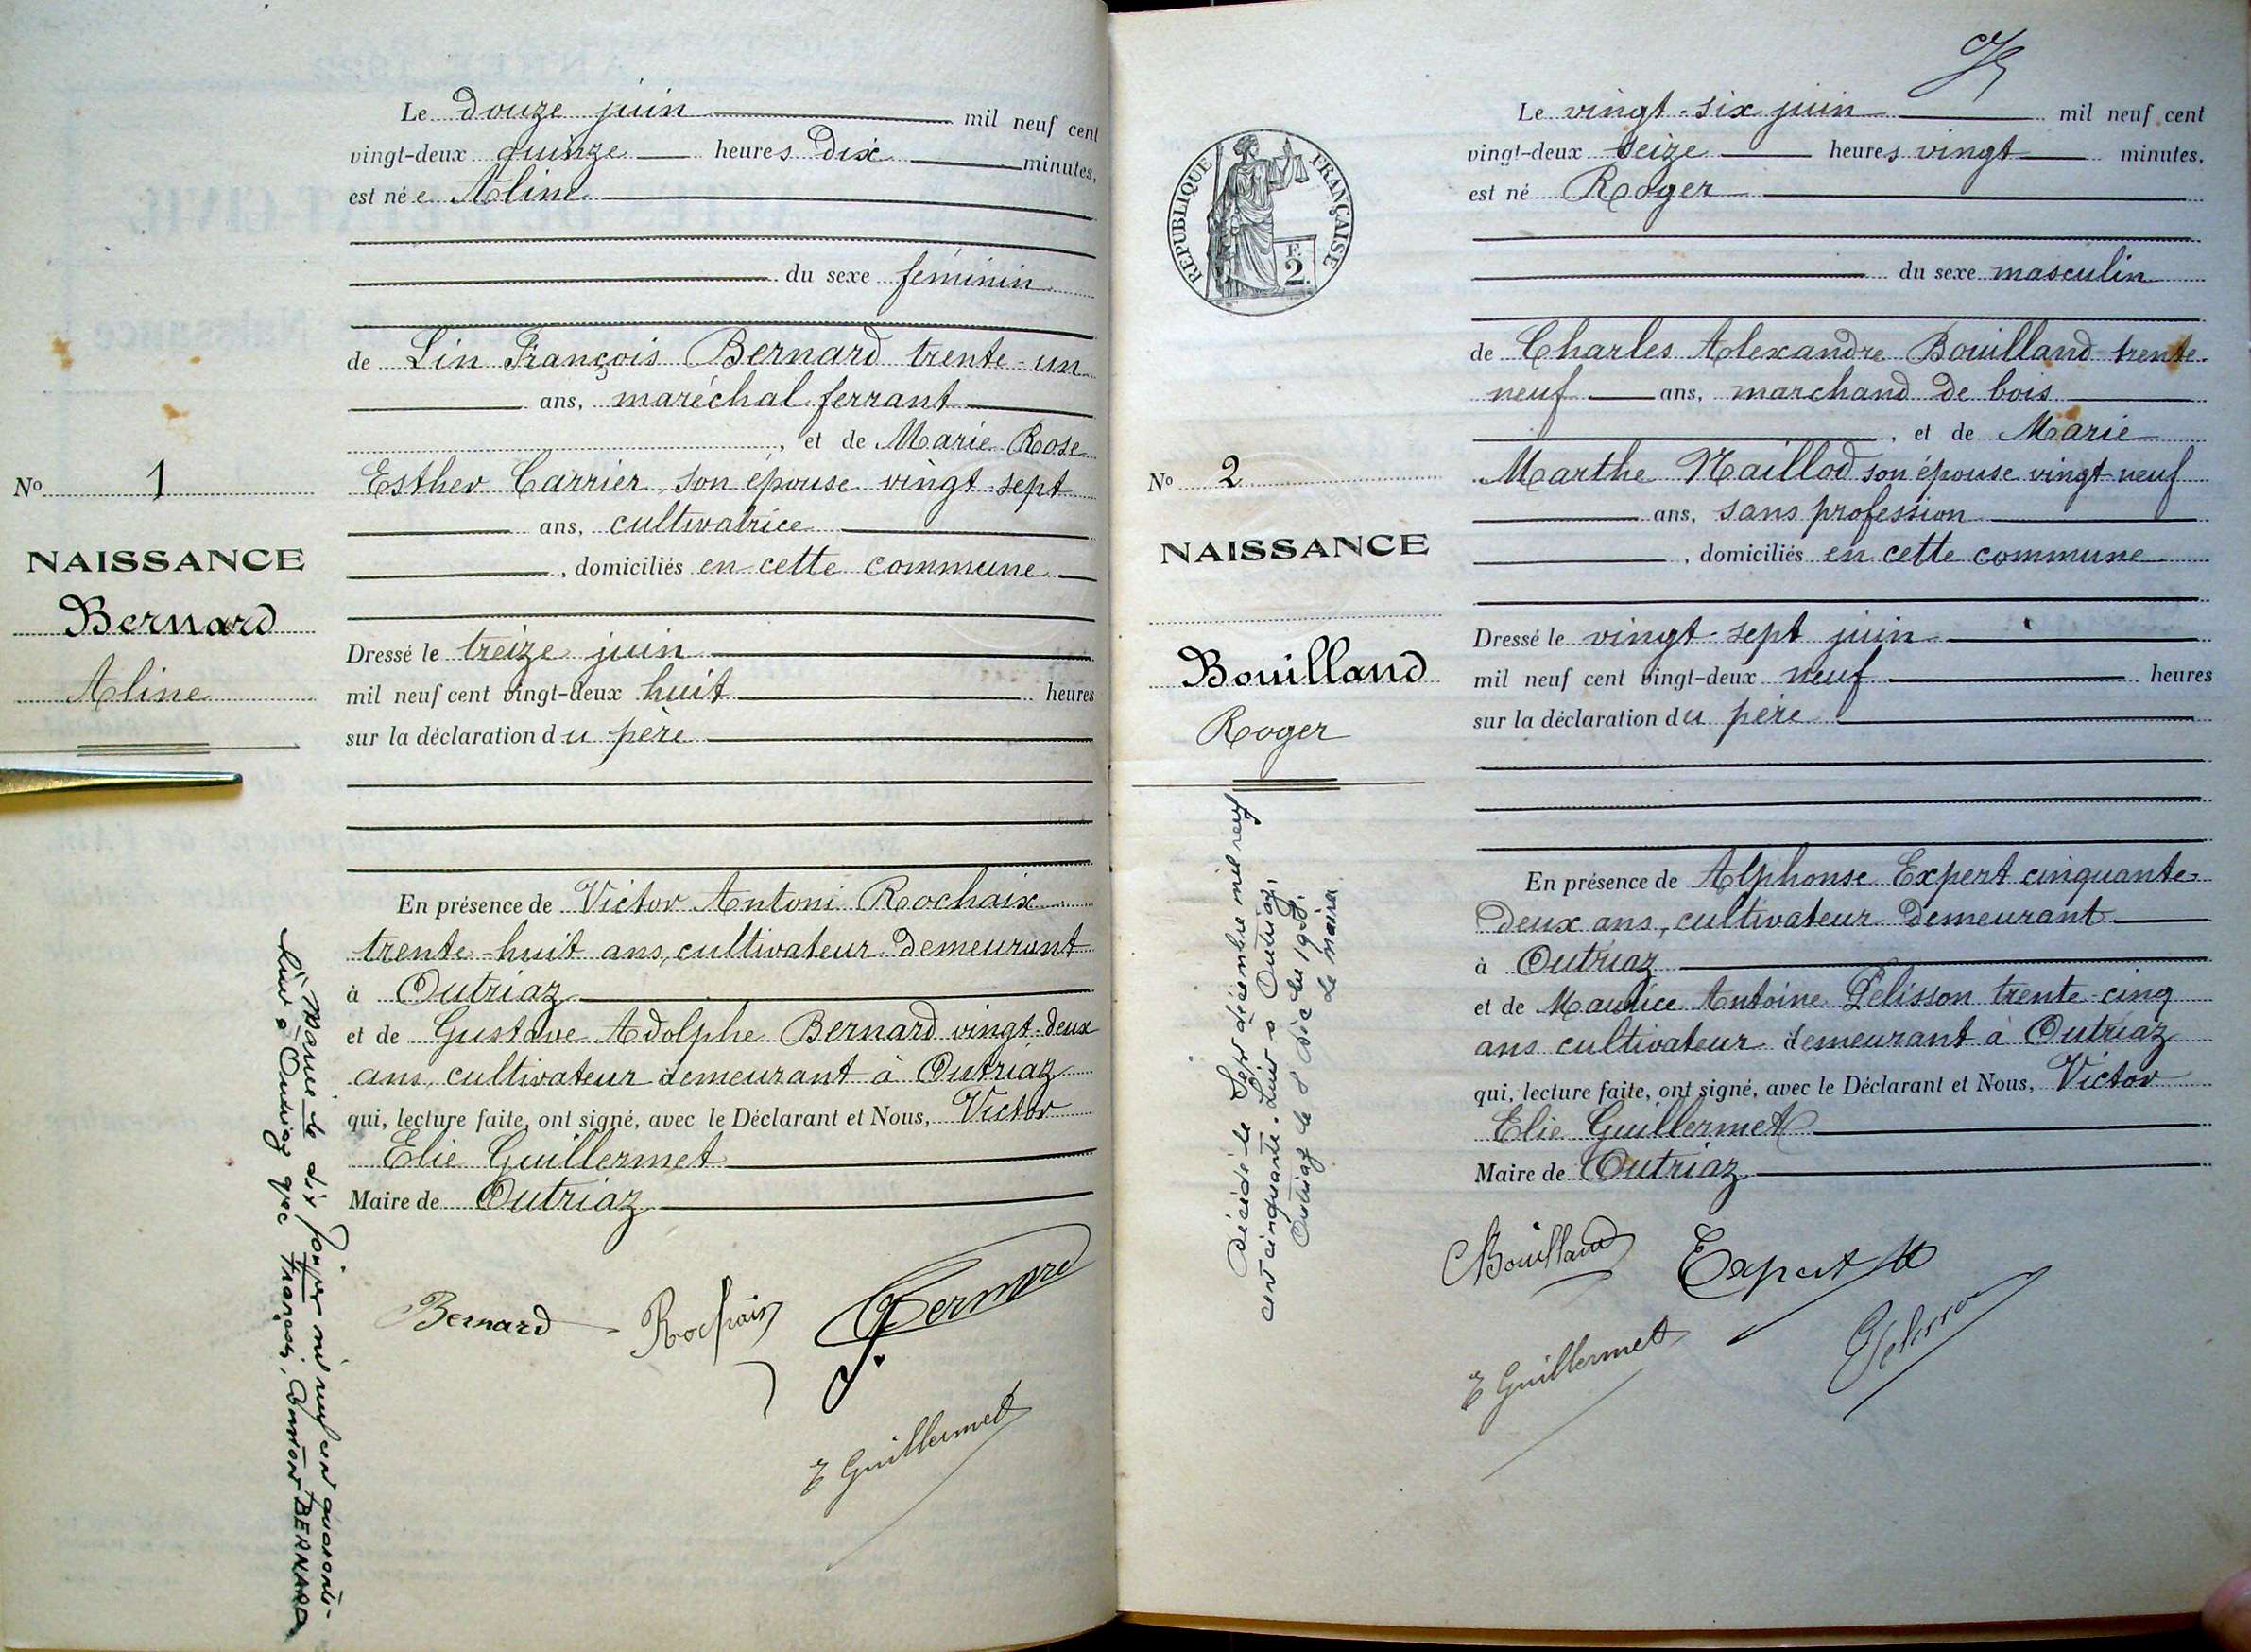 Le douze juin mil neuf cent
vingt-deux quinze heures Dix minutes,
est née Aline
du sexe féminin
de Lin François Bernard trente-un
ans, maréchal ferrant
, et de Marie Rose
Nº 1
Esther Carrier son épouse vingt-sept
ans, cultivatrice
NAISSANCE
, domiciliés en cette commune
Bernard
Aline
Dressé le treize juin
mil neuf cent vingt-deux huit heures
sur la déclaration du père
En présence de Victor Antoni Rochaix
trente-huit ans, cultivateur demeurant
à Outriaz
et de Gustave Adolphe Bernard vingt-deux
ans, cultivateur demeurant à Outriaz
qui, lecture faite, ont signé, avec le Déclarant et Nous, Victor
Elie Guillermet
Maire de Outriaz
Mariée le dix janvier mil neuf cent quarante-
à Outriaz avec François, BERNARD
Bernard Rochaix Bernard
E Guillermet
Le vingt-six juin mil neuf cent
vingt-deux seize heures vingt minutes,
est né Roger
RÉPUBLIQUE FRANÇAISE
F. 2.
du sexe masculin
de Charles Alexandre Bouilland trente-
neuf ans, marchand de bois
, et de Marie
Nº 2
Marthe Maillod son épouse vingt-neuf
ans, sans profession
NAISSANCE
, domiciliés en cette commune
Bouilland
Roger
Dressé le vingt-sept juin
mil neuf cent vingt-deux neuf heures
sur la déclaration du père
En présence de Alphonse Expert cinquante-
deux ans, cultivateur demeurant
à Outriaz
et de Maurice Antoine Pelisson trente-cinq
ans cultivateur demeurant à Outriaz
qui, lecture faite, ont signé, avec le Déclarant et Nous, Victor
Elie Guillermet
Maire de Outriaz
Décédé le sept décembre mil neuf
cent cinquante. à Outriaz,
Outriaz le 8 Déc
Le Maire
Bouilland Expert A
E Guillermet Pelisson